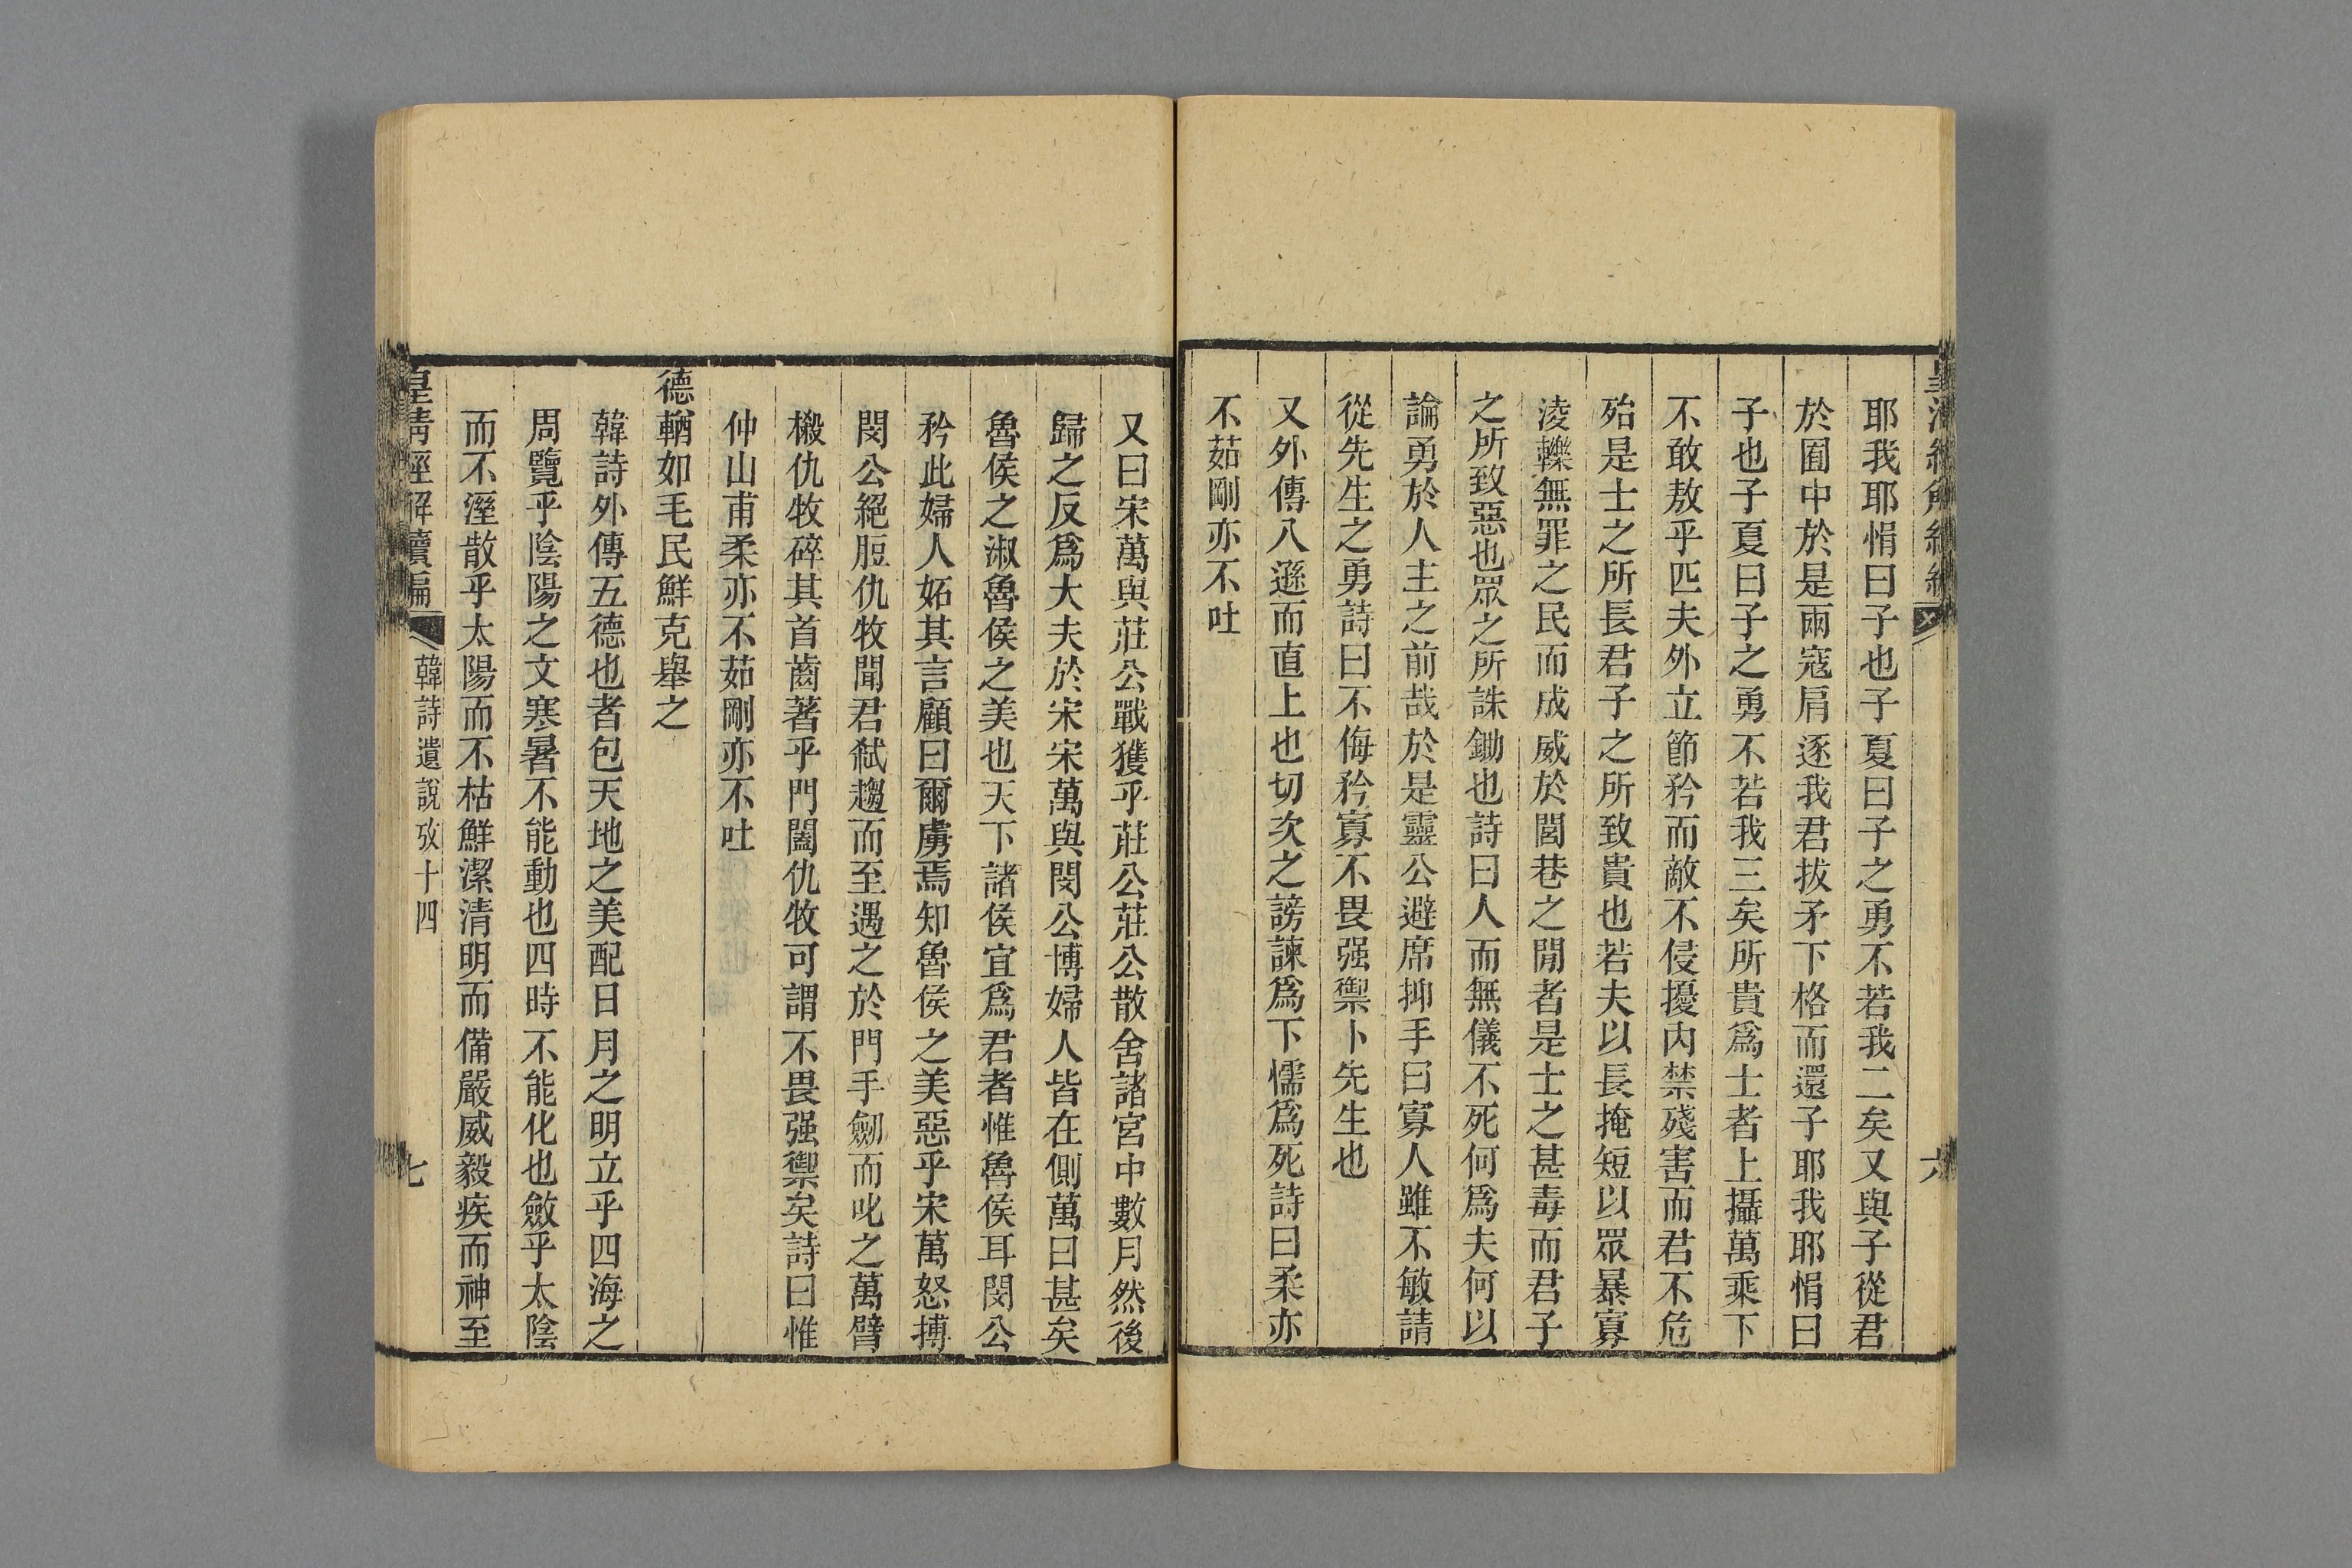 耶我耶悁曰子也子夏曰子之勇不若我二矣又與子從君
於囿中於是兩寇肩逐我君拔矛下格而還子耶我耶悁曰
子也子夏曰子之勇不若我三矣所貴爲士者上攝萬乘下
不敢敖乎匹夫外立節矜而敵不侵擾內禁殘害而君不危
殆是士之所長君子之所致貴也若夫以長掩短以眾暴寡
淩轢無罪之民而成威於閭巷之閒者是士之甚毒而君子
之所致惡也眾之所誅鋤也詩曰人而無儀不死何爲夫何以
論勇於人主之前哉於是靈公避席抑手曰寡人雖不敏請
從先生之勇詩曰不侮矜寡不畏强禦卜先生也
又外傳八遜而直上也切次之謗諫爲下懦爲死詩曰柔亦
不茹剛亦不吐
六
又曰宋萬與莊公戰獲乎莊公莊公散舍諸宮中數月然後
歸之反爲大夫於宋宋萬與閔公博婦人皆在側萬曰甚矣
魯侯之淑魯侯之美也天下諸侯宜爲君者惟魯侯耳閔公
矜此婦人妬其言顧曰爾虜焉知魯侯之美惡乎宋萬怒搏
閔公絕脰仇牧聞君弑趨而至遇之於門手劒而叱之萬臂
摋仇牧碎其首齒著乎門闔仇牧可謂不畏强禦矣詩曰惟
仲山甫柔亦不茹剛亦不吐
德輶如毛民鮮克舉之
韓詩外傳五德也者包天地之美配日月之明立乎四海之
周覽乎陰陽之文寒暑不能動也四時不能化也斂乎太陰
而不溼散乎太陽而不枯鮮潔清明而備嚴威毅疾而神至
皇清經解續編
韓詩遺說攷十四
七